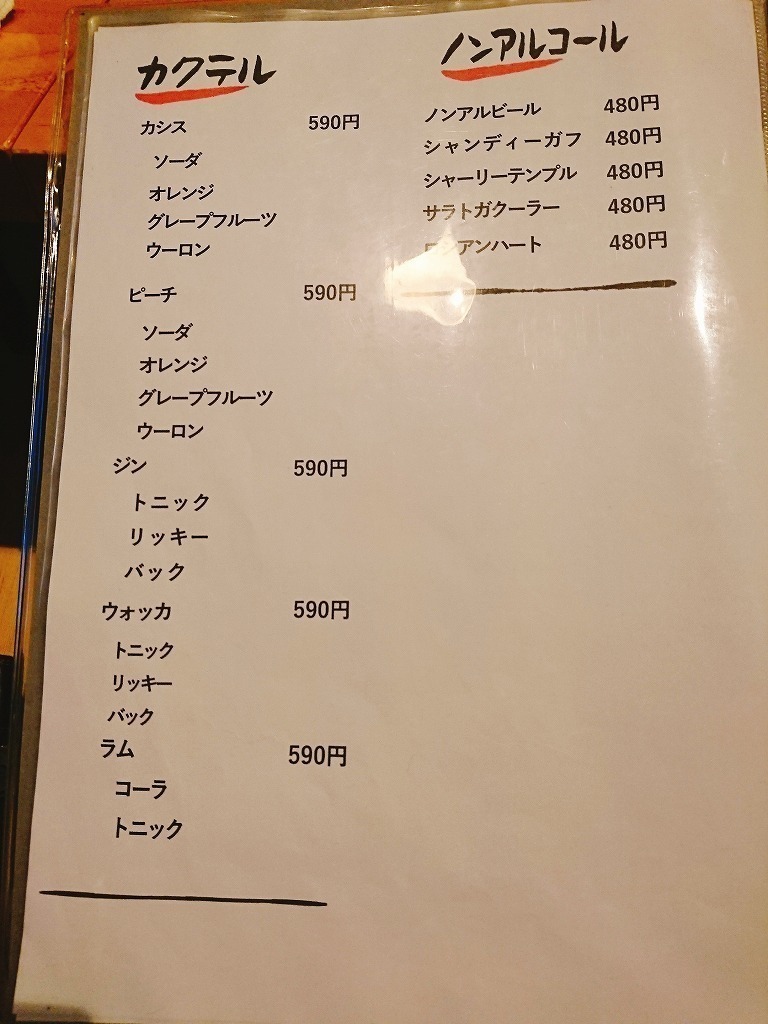 カクテル
カシス 590円
ソーダ
オレンジ
グレープフルーツ
ウーロン
ピーチ 590円
ソーダ
オレンジ
グレープフルーツ
ウーロン
ジン 590円
トニック
リッキー
バック
ウォッカ 590円
トニック
リッキー
バック
ラム 590円
コーラ
トニック
ノンアルコール
ノンアルビール 480円
シャンディーガフ 480円
シャーリーテンプル 480円
サラトガクーラー 480円
480円